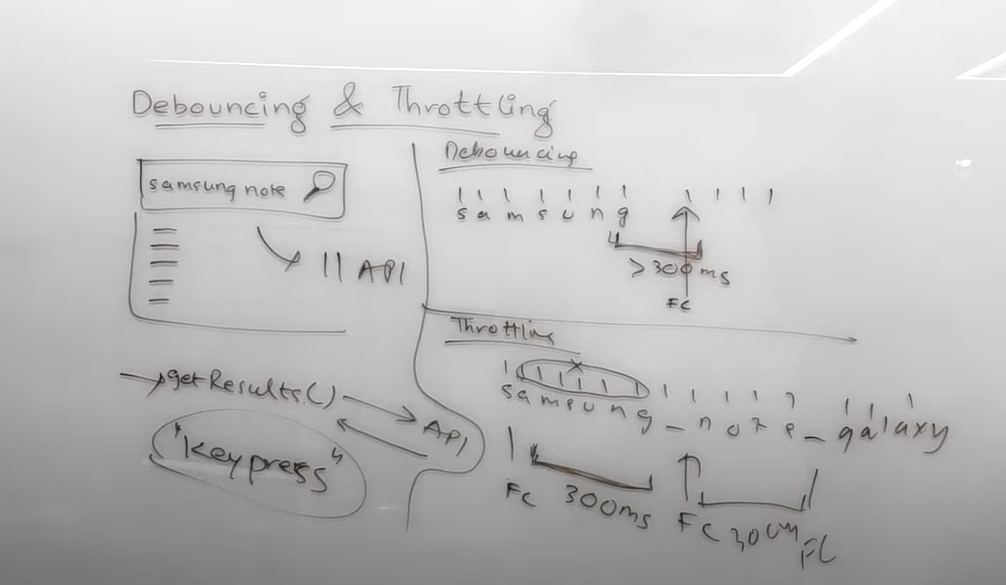 Debouncing & Throttling
samsung note
11 API
getResults()
API
"Keypress"
Debouncing
samsung
>300ms
FC
Throttling
samsung_note_galaxy
FC 300ms FC 300m FC